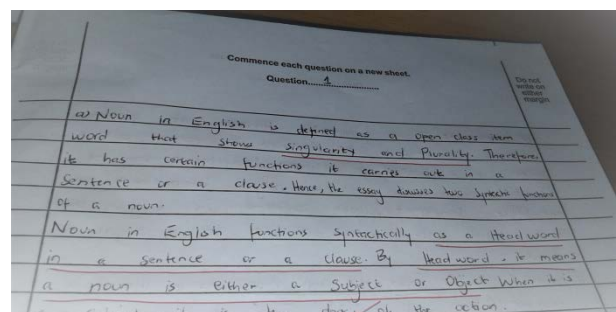 Commence each question on a new sheet.
Question 1
Do not
write on
either
margin
a) Noun in English is defined as a open class item
word that shows singularity and Plurality. Therefore,
it has certain functions it carries out in a
Sentence or a clause. Hence, the essay discusses two Syntactic functions
of a noun.
Noun in English functions Syntactically as a Head word
in a sentence or a clause. By Head word, it means
a noun is either a Subject or Object when it is
of the action.